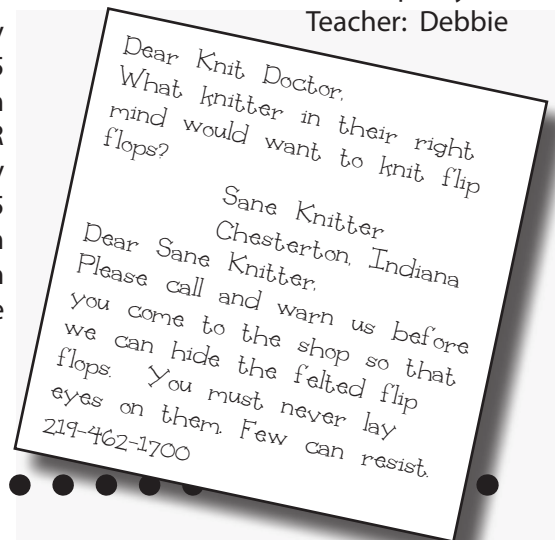 Teacher: Debbie
Dear Knit Doctor,
What knitter in their right
mind would want to knit flip
flops?
Sane Knitter
Chesterton, Indiana
Dear Sane Knitter,
Please call and warn us before
you come to the shop so that
we can hide the felted flip
flops. You must never lay
eyes on them. Few can resist.
219-462-1700